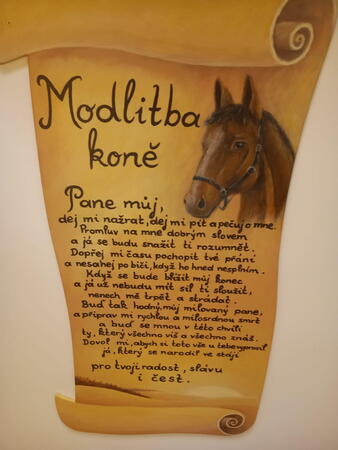 Modlitba
koně
Pane můj,
dej mi nažrat, dej mi pít a pečuj o mne.
Promluv na mne dobrým slovem
a já se budu snažit ti rozumnět.
Dopřej mi času pochopit tvé přání
a nesahej po biči, když ho hned nesplním.
Když se bude blížit můj konec
a já už nebudu mít sil ti sloužit,
nenech mě trpět a strádat.
Buď tak hodný, můj milovaný pane,
a připrav mi rychlou a milosrdnou smrt
a buď se mnou v této chvíli
ty, který všechno víš a všechno znáš.
Dovol mi, abych si toto vše u tebe vyprosil
já, který se narodil ve stáji
pro tvoji radost, slávu
i čest.